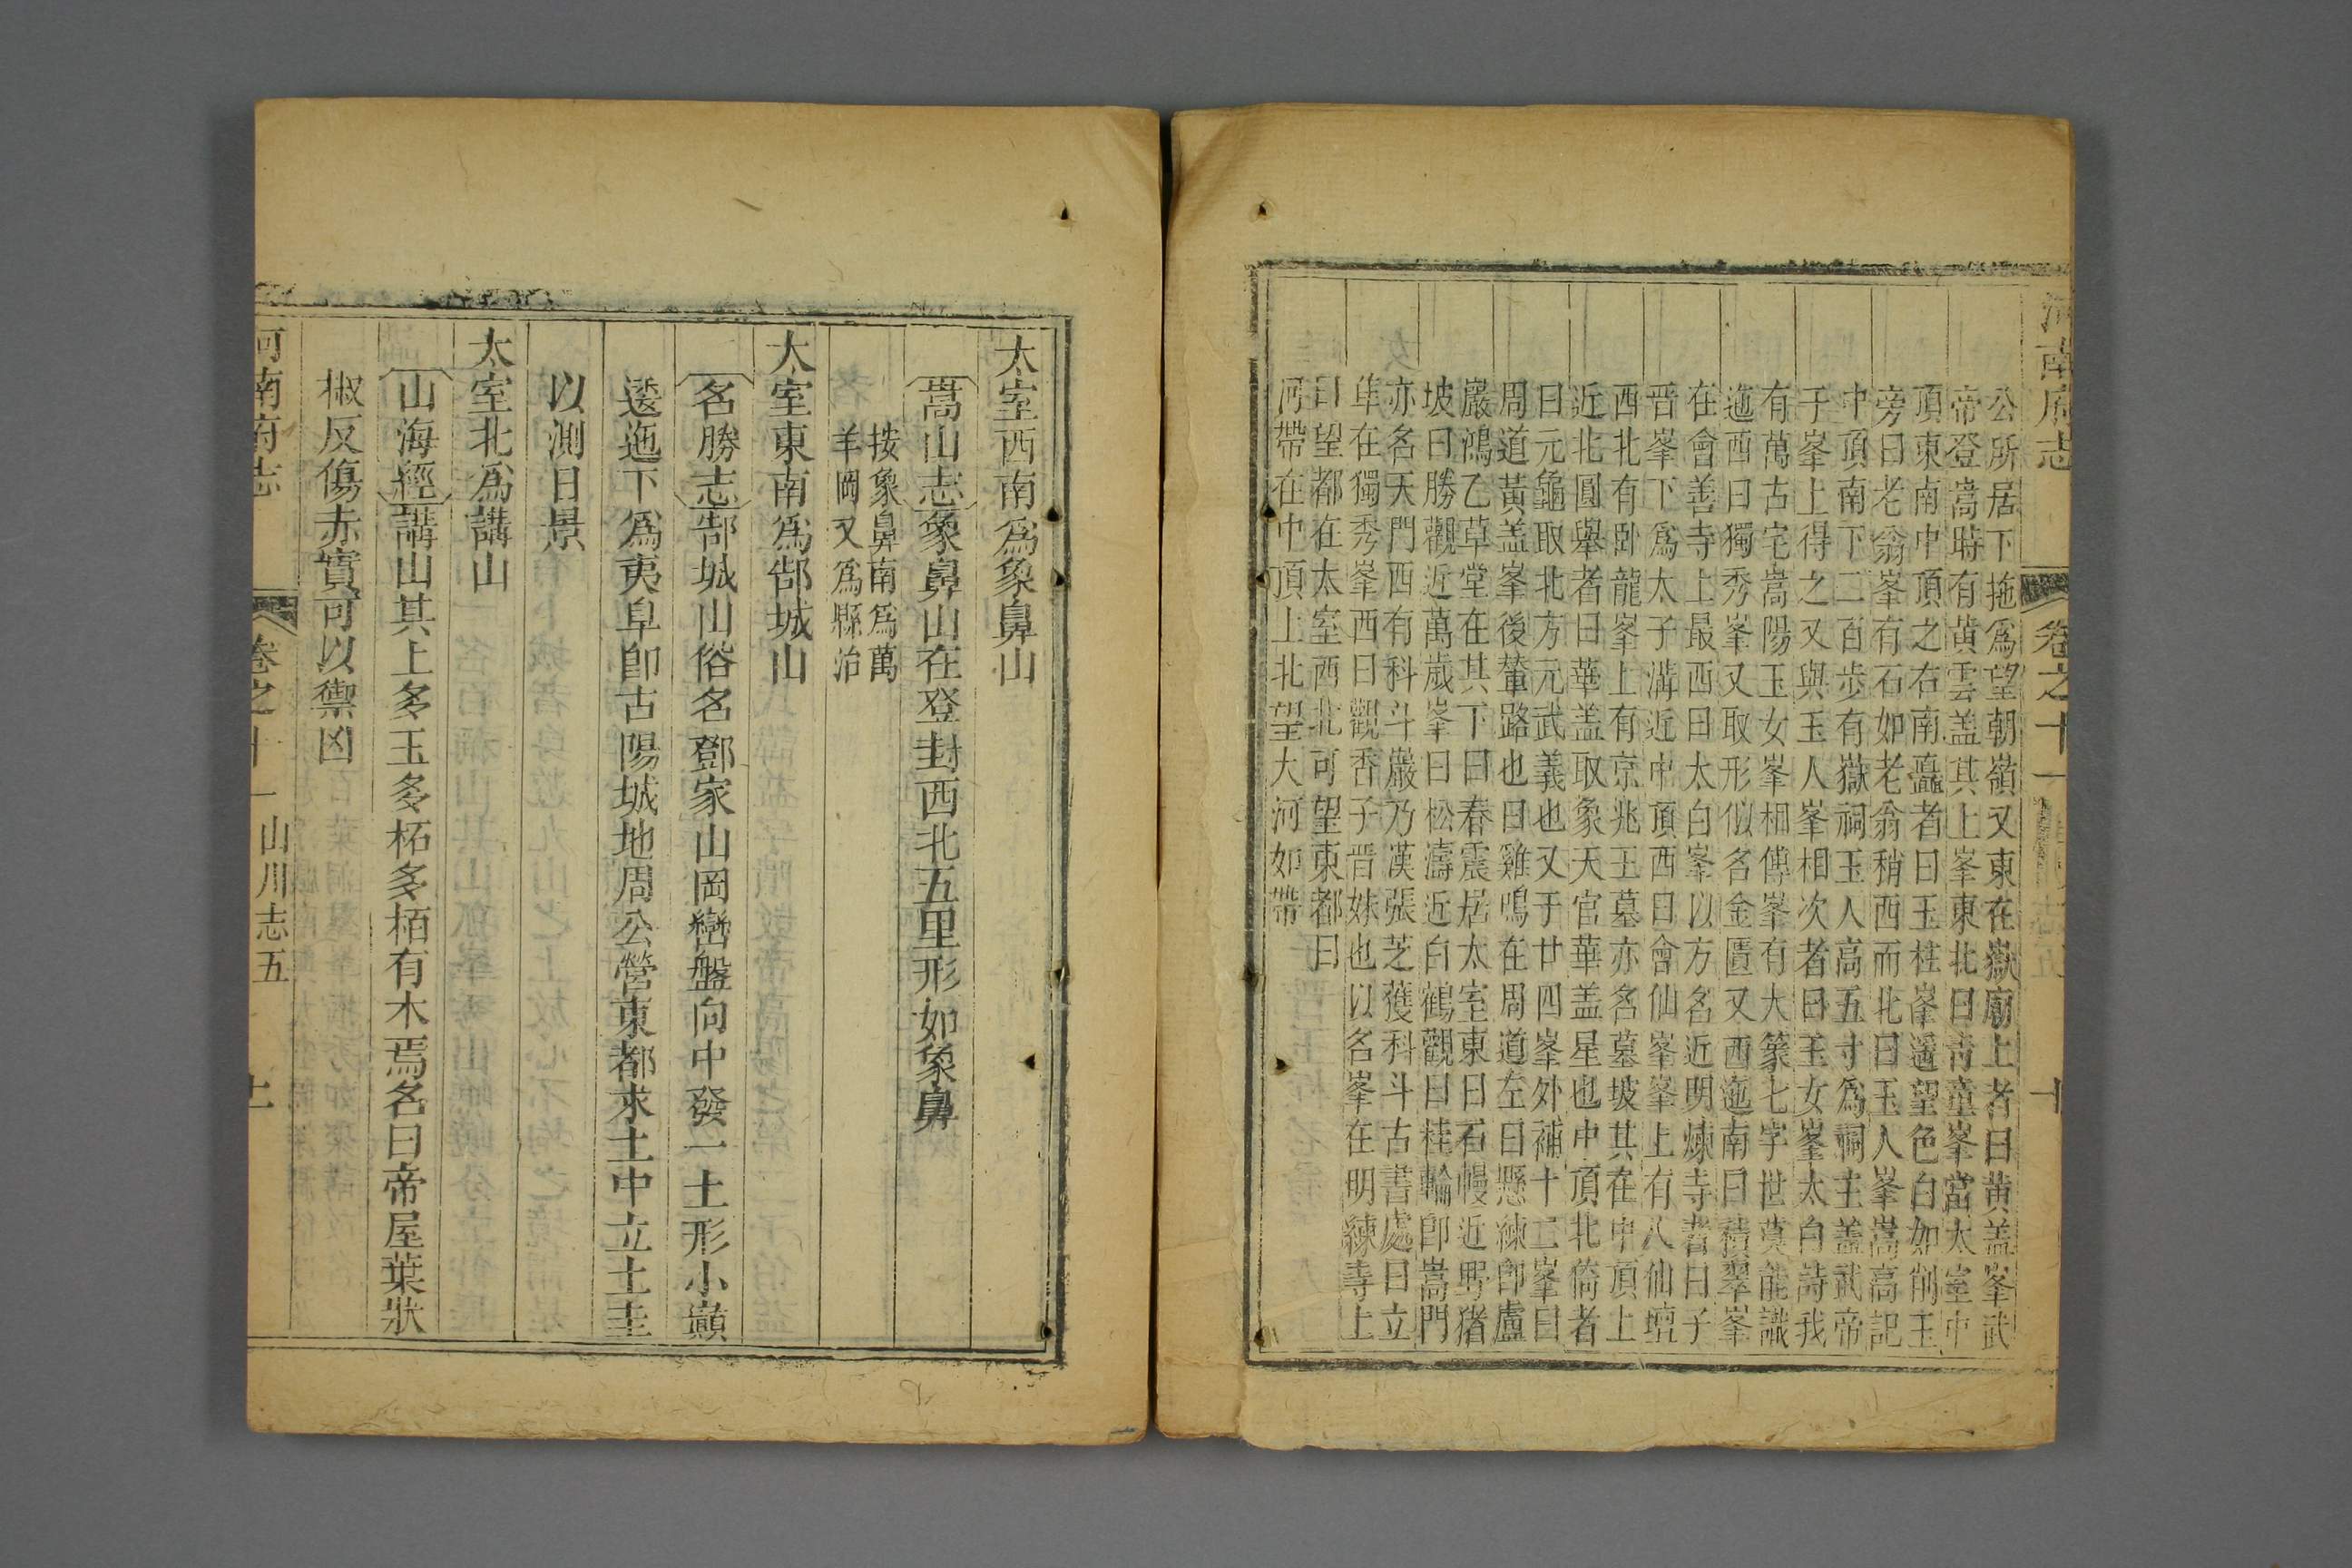 河南府志
卷之十一
十
公所居下拖爲望朝嶺又東在嶽廟上者曰黃盖峯武
帝登嵩時有黃雲盖其上峯東北曰靑童峯當太室中
頂東南中頂之右南矗者曰玉柱峯遥望色白如削玉
旁曰老翁峯有石如老翁稍西而北曰玉人峯嵩高記
中頂南下二百步有嶽祠玉人高五寸爲祠主盖武帝
于峯上得之又與玉人峯相次者曰玉女峯太白詩我
有萬古宅嵩陽玉女峯相傳峯有大篆七字世莫能識
迤西曰獨秀峯又取形似名金匱又西迤南曰積翠峯
在會善寺上最西曰太白峯以方名近明煉寺者曰子
晋峯下爲太子溝近中頂西曰會仙峯峯上有八仙壇
西北有卧龍峯上有京兆王墓亦名墓坡其在中頂上
近北圓舉者曰華盖取象天官華盖星也中頂北倚者
曰元龜取北方元武義也又于廿四峯外補十二峯曰
周道黃盖峯後輦路也曰雞鳴在周道左曰懸練卽盧
巖鴻乙草堂在其下曰春震居太室東曰石幔近野猪
坡曰勝觀近萬歲峯曰松濤近白鶴觀曰桂輪卽嵩門
亦名天門西有科斗巖乃漢張芝獲科斗古書處曰立
隼在獨秀峯西曰觀香子晋妹也以名峯在明練寺上
曰望都在太室西北可望東都曰
河帶在中頂上北望大河如帶
太室西南爲象鼻山
嵩山志象鼻山在登封西北五里形如象鼻
按象鼻南爲萬
羊岡又爲縣治
太室東南爲郜城山
名勝志郜城山俗名鄧家山岡巒盤向中發一土形小巔
逶迤下爲夷阜卽古陽城地周公營東都求土中立土圭
以測日景
太室北爲講山
山海經講山其上多玉多柘多栢有木焉名曰帝屋葉狀
椒反傷赤實可以禦凶
河南府志
卷之十一
山川志五